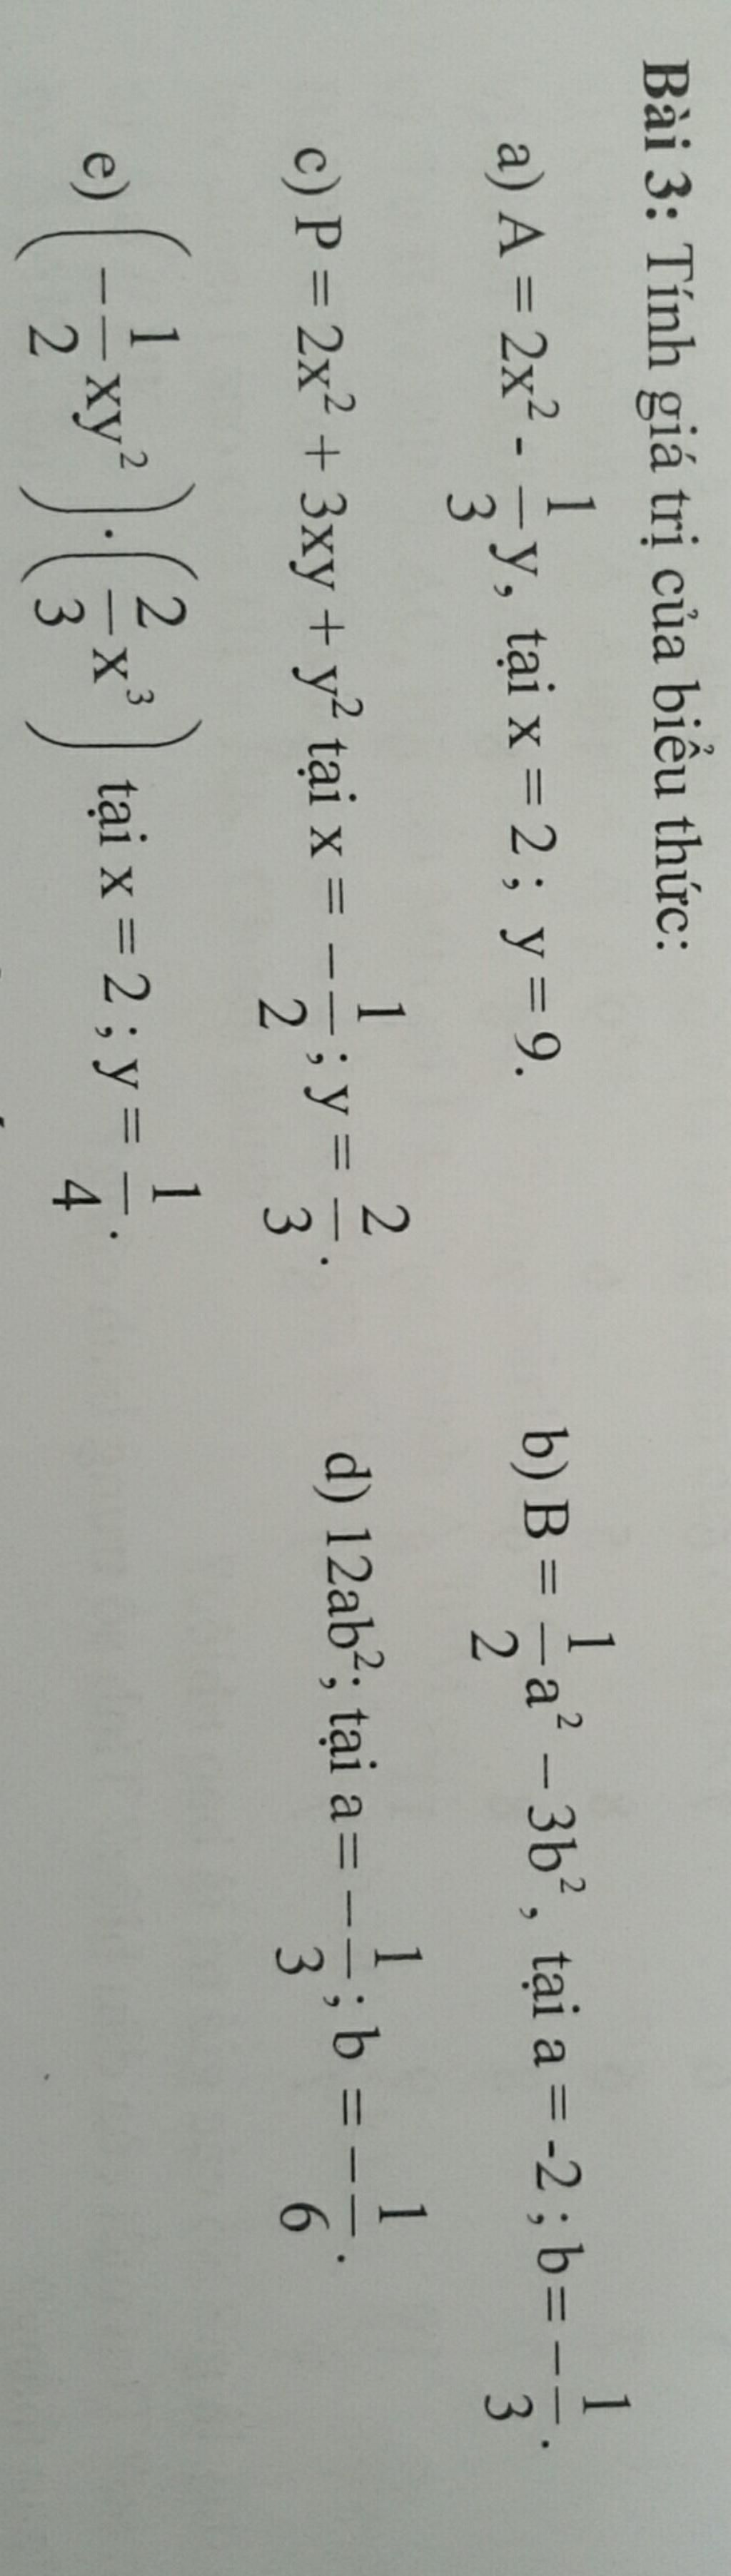 Bài 3: Tính giá trị của biểu thức:
a) A = 2x² - 1/3 y, tại x = 2 ; y = 9.
b) B = 1/2 a² – 3b², tại a = -2 ; b = –1/3.
c) P = 2x² + 3xy + y² tại x = –1/2 ; y = 2/3.
d) 12ab²; tại a = –1/3 ; b = –1/6.
e) (–1/2 xy²) · (2/3 x³) tại x = 2 ; y = 1/4.